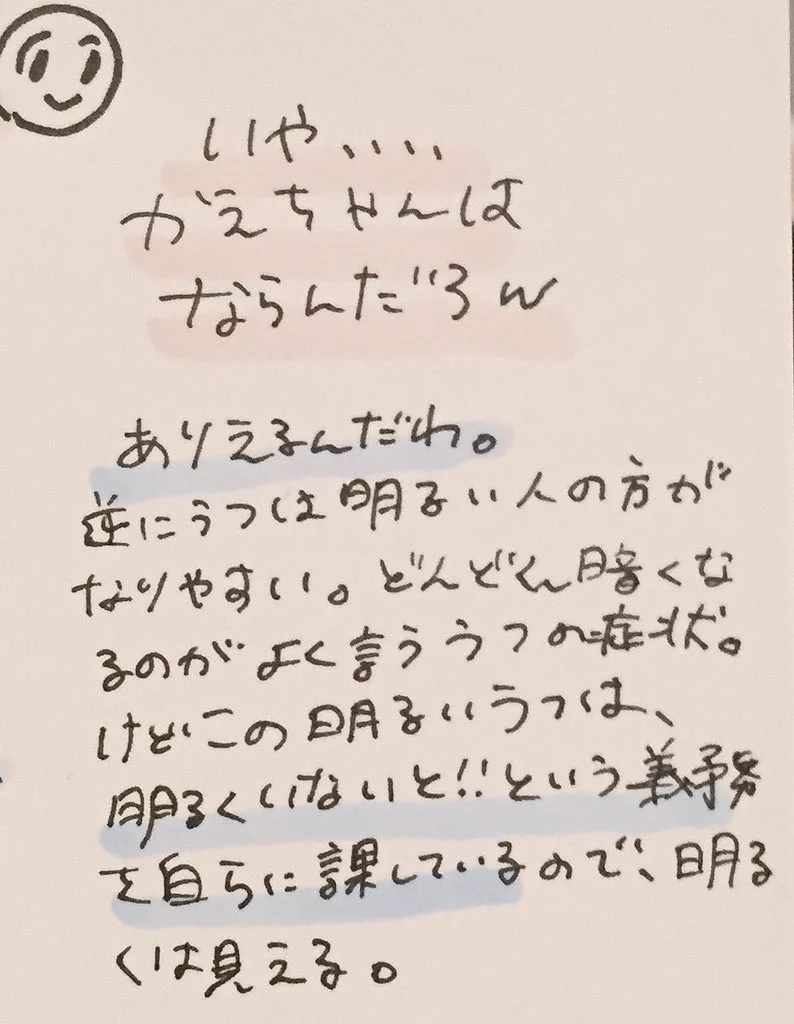 いや、、、、
がえちゃんは
ならんだろw
ありえるんだわ。
逆にうつは明るい人の方が
なりやすい。どんどん暗くな
るのがよく言ううつの症状。
けどこの明るいうつは、
明るくいけないと!!という義務
を自らに課しているので、明る
くは見える。